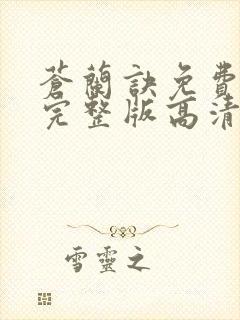 蒼蘭訣免費
完整版高清
雪靈之